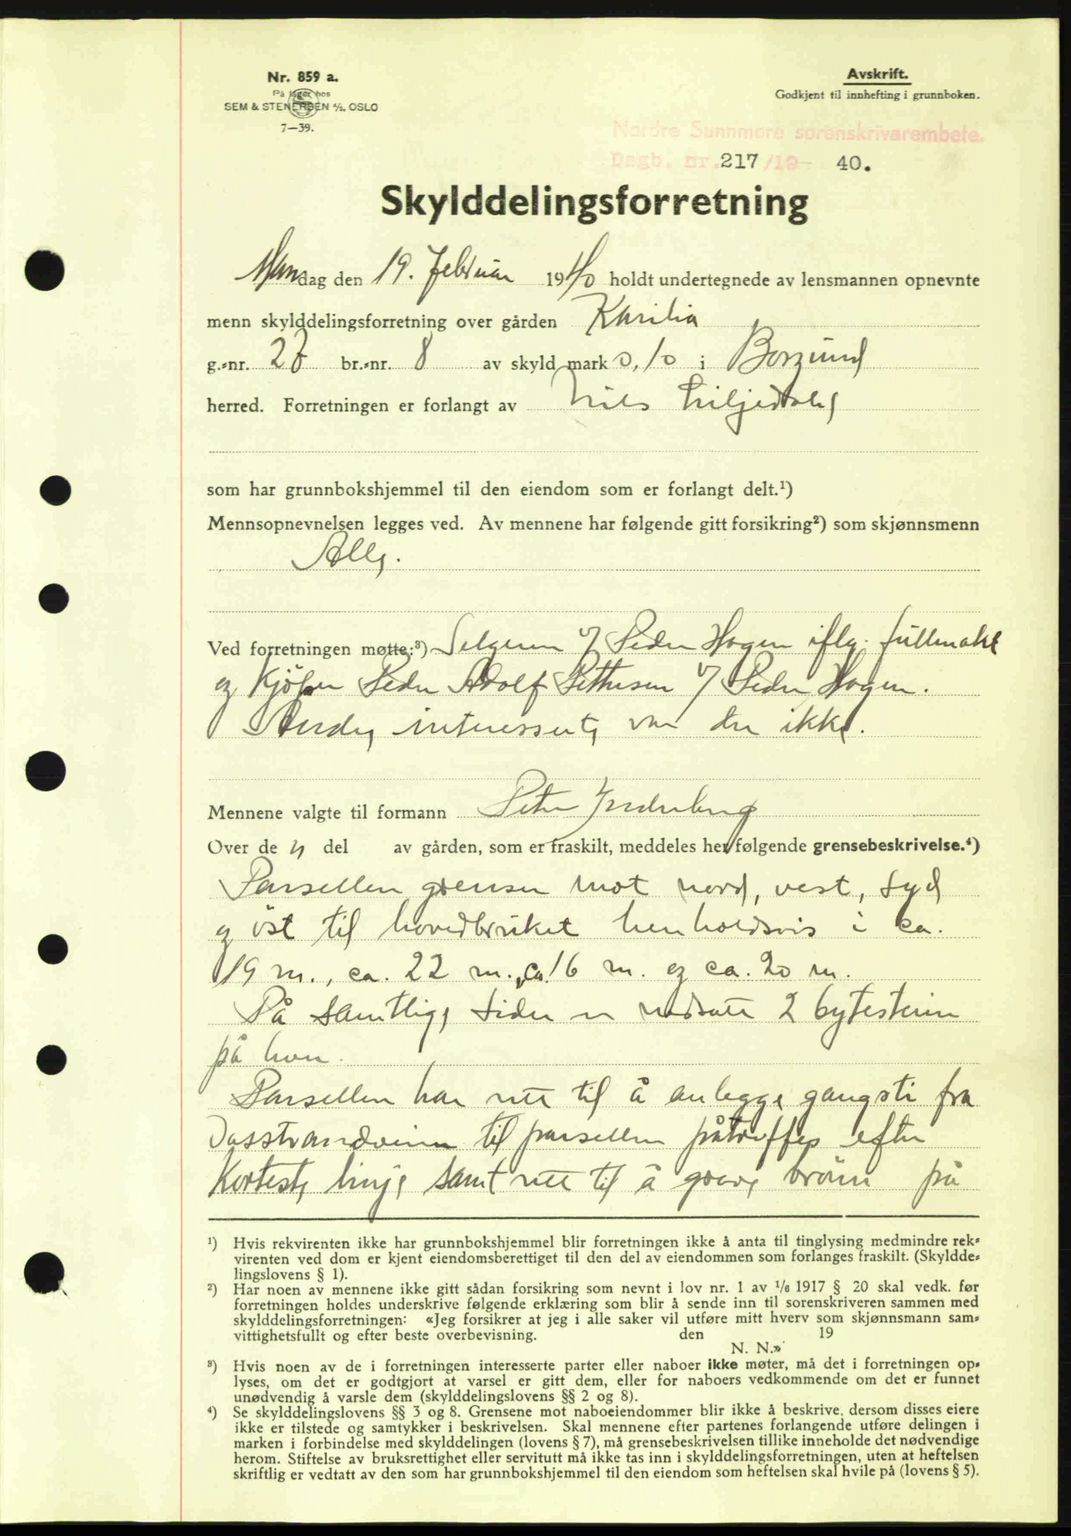 Nr. 859 a.
På lager hos
SEM & STENERSEN A/S. OSLO
7—39.
Avskrift.
Godkjent til innhefting i grunnboken.
Nordre Sunnmøre sorenskrivarembete.
Dagb. nr. 217/19 40.
Skylddelingsforretning
Mandag den 19. Februar 1940 holdt undertegnede av lensmannen opnevnte
menn skylddelingsforretning over gården Karilia
g.-nr. 27 br.-nr. 8 av skyld mark 0,10 i Borgund
herred. Forretningen er forlangt av Nils Liljedahl
som har grunnbokshjemmel til den eiendom som er forlangt delt.¹)
Mennsopnevnelsen legges ved. Av mennene har følgende gitt forsikring²) som skjønnsmenn
Alle.
Ved forretningen møtte:³) Selgeren v/ Peder Hagen iflg. fullmakt
og Kjöper Peder Adolf Pettersen v/ Peder Hagen.
Andre interesserte var der ikke.
Mennene valgte til formann Peter
Over de n del av gården, som er fraskilt, meddeles her følgende grensebeskrivelse.⁴)
Parsellen grenser mot nord, vest, syd
og öst til hovedbruket henholdsvis i ca.
19 m., ca. 22 m., ca. 16 m. og ca. 20 m.
På samtlige sider er nedsatt 2 bytesteiner
på hver.
Parsellen har rett til å anlegge gangsti fra
til parsellen påtreffes efter
Korteste linje samt rett til å grave brönn på
¹) Hvis rekvirenten ikke har grunnbokshjemmel blir forretningen ikke å anta til tinglysing medmindre rek-
virenten ved dom er kjent eiendomsberettiget til den del av eiendommen som forlanges fraskilt. (Skyldde-
lingslovens § 1).
²) Har noen av mennene ikke gitt sådan forsikring som nevnt i lov nr. 1 av ¹/₆ 1917 § 20 skal vedk. før
forretningen holdes underskrive følgende erklæring som blir å sende inn til sorenskriveren sammen med
skylddelingsforretningen: «Jeg forsikrer at jeg i alle saker vil utføre mitt hverv som skjønnsmann sam-
vittighetsfullt og efter beste overbevisning. den 19
N. N.»
³) Hvis noen av de i forretningen interesserte parter eller naboer ikke møter, må det i forretningen op-
lyses, om det er godtgjort at varsel er gitt dem, eller for naboers vedkommende om det er funnet
unødvendig å varsle dem (skylddelingslovens §§ 2 og 8).
⁴) Se skylddelingslovens §§ 3 og 8. Grensene mot naboeiendommer blir ikke å beskrive, dersom disses eiere
ikke er tilstede og samtykker i beskrivelsen. Skal mennene efter partenes forlangende utføre delingen i
marken i forbindelse med skylddelingen (lovens § 7), må grensebeskrivelsen tillike inneholde det nødvendige
herom. Stiftelse av bruksrettighet eller servitutt må ikke tas inn i skylddelingsforretningen, uten at heftelsen
skriftlig er vedtatt av den som har grunnbokshjemmel til den eiendom som heftelsen skal hvile på (lovens § 5).